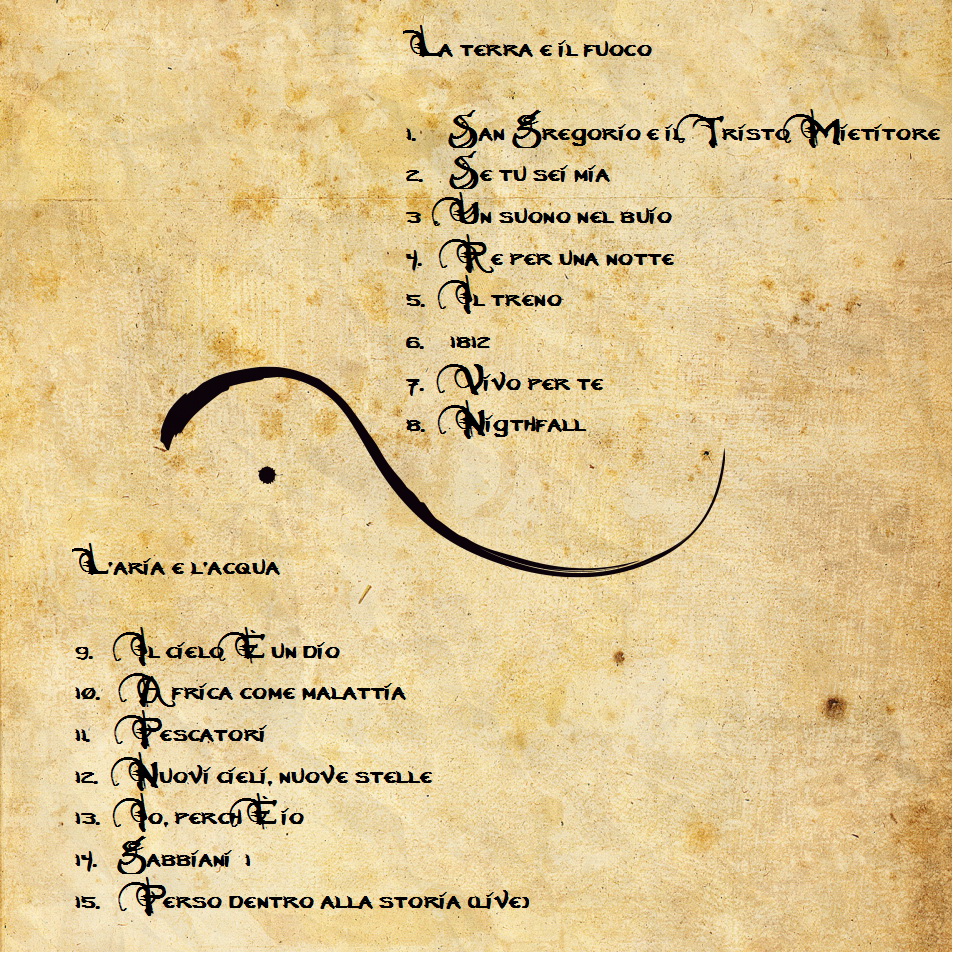 La terra e il fuoco
1. San Gregorio e il Tristo Mietitore
2. Se tu sei mia
3 Un suono nel buio
4. Re per una notte
5. Il treno
6. 1812
7. Vivo per te
8. Nigthfall
L'aria e l'acqua
9. Il cielo È un dio
10. Africa come malattia
11. Pescatori
12. Nuovi cieli, nuove stelle
13. Io, perchÈ io
14. Gabbiani 1
15. Perso dentro alla storia (live)